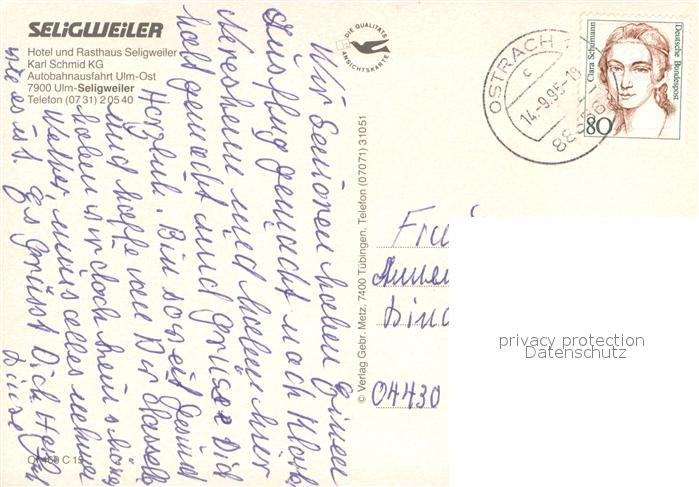 SELIGWEILER
Hotel und Rasthaus Seligweiler
Karl Schmid KG
Autobahnausfahrt Ulm-Ost
7900 Ulm-Seligweiler
Telefon (0731) 20540
DIE QUALITÄTS
ANSICHTSKARTE
Wir Senioren haben Einen
Ausflug gemacht nach Kloster
Neresheim und haben hier
halt gemacht und Grüße Dich
Herzlich. Bin soweit gesund
und hoffe von Dir dasselbe
haben wir doch kein schönes
Wetter, muss alles nehmen
wie es ist. Es grüsst Dich
© Verlag Gebr. Metz, 7400 Tübingen, Telefon (07071) 31051
OSTRACH
c
14.-9.95-18
88356
Clara Schumann
Deutsche Bundespost
80
04430
privacy protection
Datenschutz